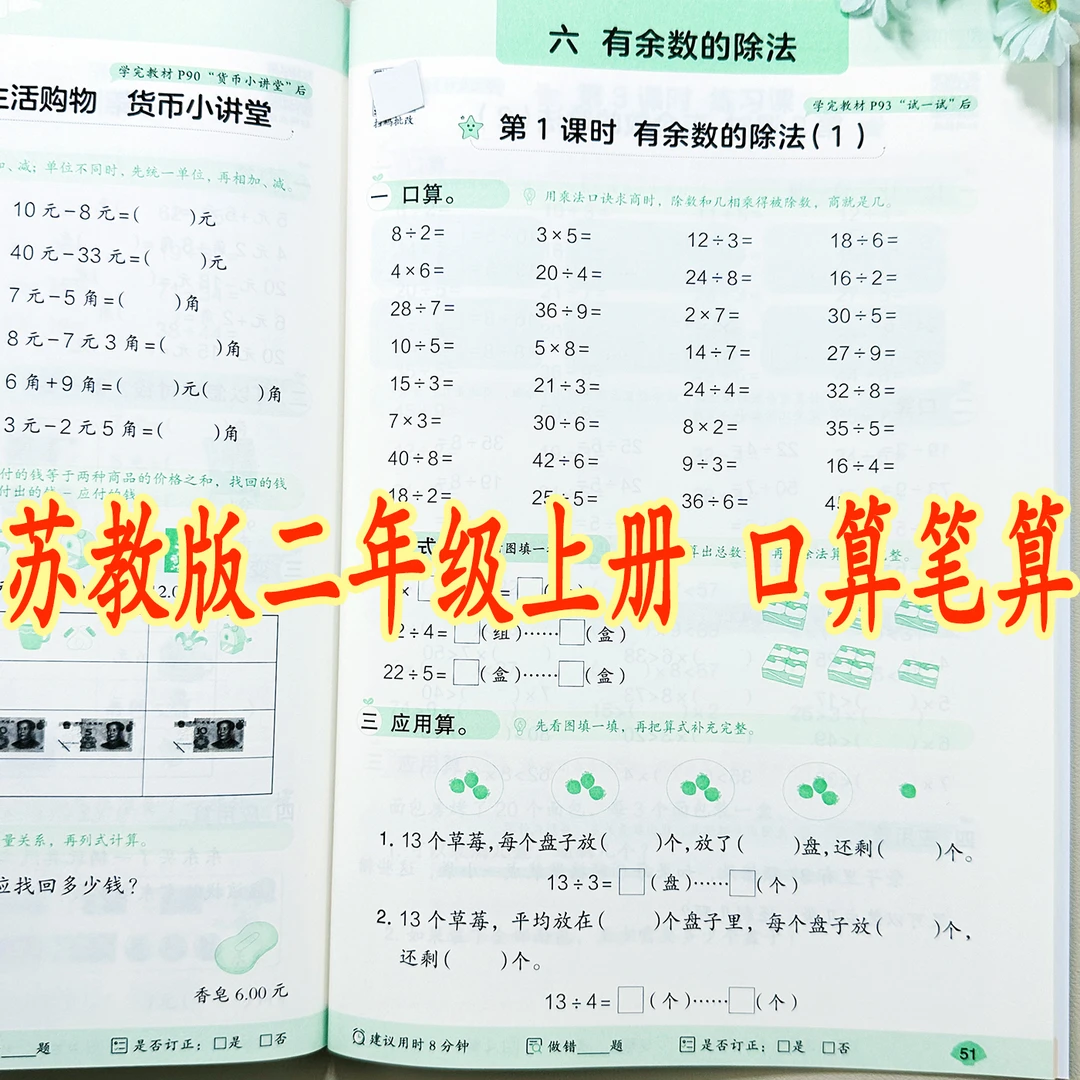 学完教材 P90 “货币小讲堂”后
生活购物 货币小讲堂
加、减；单位不同时，先统一单位，再相加、减。
10元－8元＝(　)元
40元－33元＝(　)元
7元－5角＝(　)角
8元－7元3角＝(　)角
6角＋9角＝(　)元(　)角
3元－2元5角＝(　)角
付的钱等于两种商品的价格之和，找回的钱
应付的钱
量关系，再列式计算。
应找回多少钱？
香皂 6.00 元
____题 是否订正：□是 □否
六 有余数的除法
扫码批改
学完教材 P93 “试一试”后
第 1 课时 有余数的除法(1)
一 口算。 用乘法口诀求商时，除数和几相乘得被除数，商就是几。
8÷2＝ 3×5＝ 12÷3＝ 18÷6＝
4×6＝ 20÷4＝ 24÷8＝ 16÷2＝
28÷7＝ 36÷9＝ 2×7＝ 30÷5＝
10÷5＝ 5×8＝ 14÷7＝ 27÷9＝
15÷3＝ 21÷3＝ 24÷4＝ 32÷8＝
7×3＝ 30÷6＝ 8×2＝ 35÷5＝
40÷8＝ 42÷6＝ 9÷3＝ 16÷4＝
18÷2＝ 25÷5＝ 36÷6＝
苏教版二年级上册 口算笔算
2÷4＝□(组)……□(盒)
22÷5＝□(盒)……□(盒)
三 应用算。 先看图填一填，再把算式补充完整。
1. 13 个草莓，每个盘子放(　)个，放了(　)盘，还剩(　)个。
13÷3＝□(盘)……□(个)
2. 13 个草莓，平均放在(　)个盘子里，每个盘子放(　)个，
还剩(　)个。
13÷4＝□(个)……□(个)
建议用时 8 分钟 做错____题 是否订正：□是 □否
51